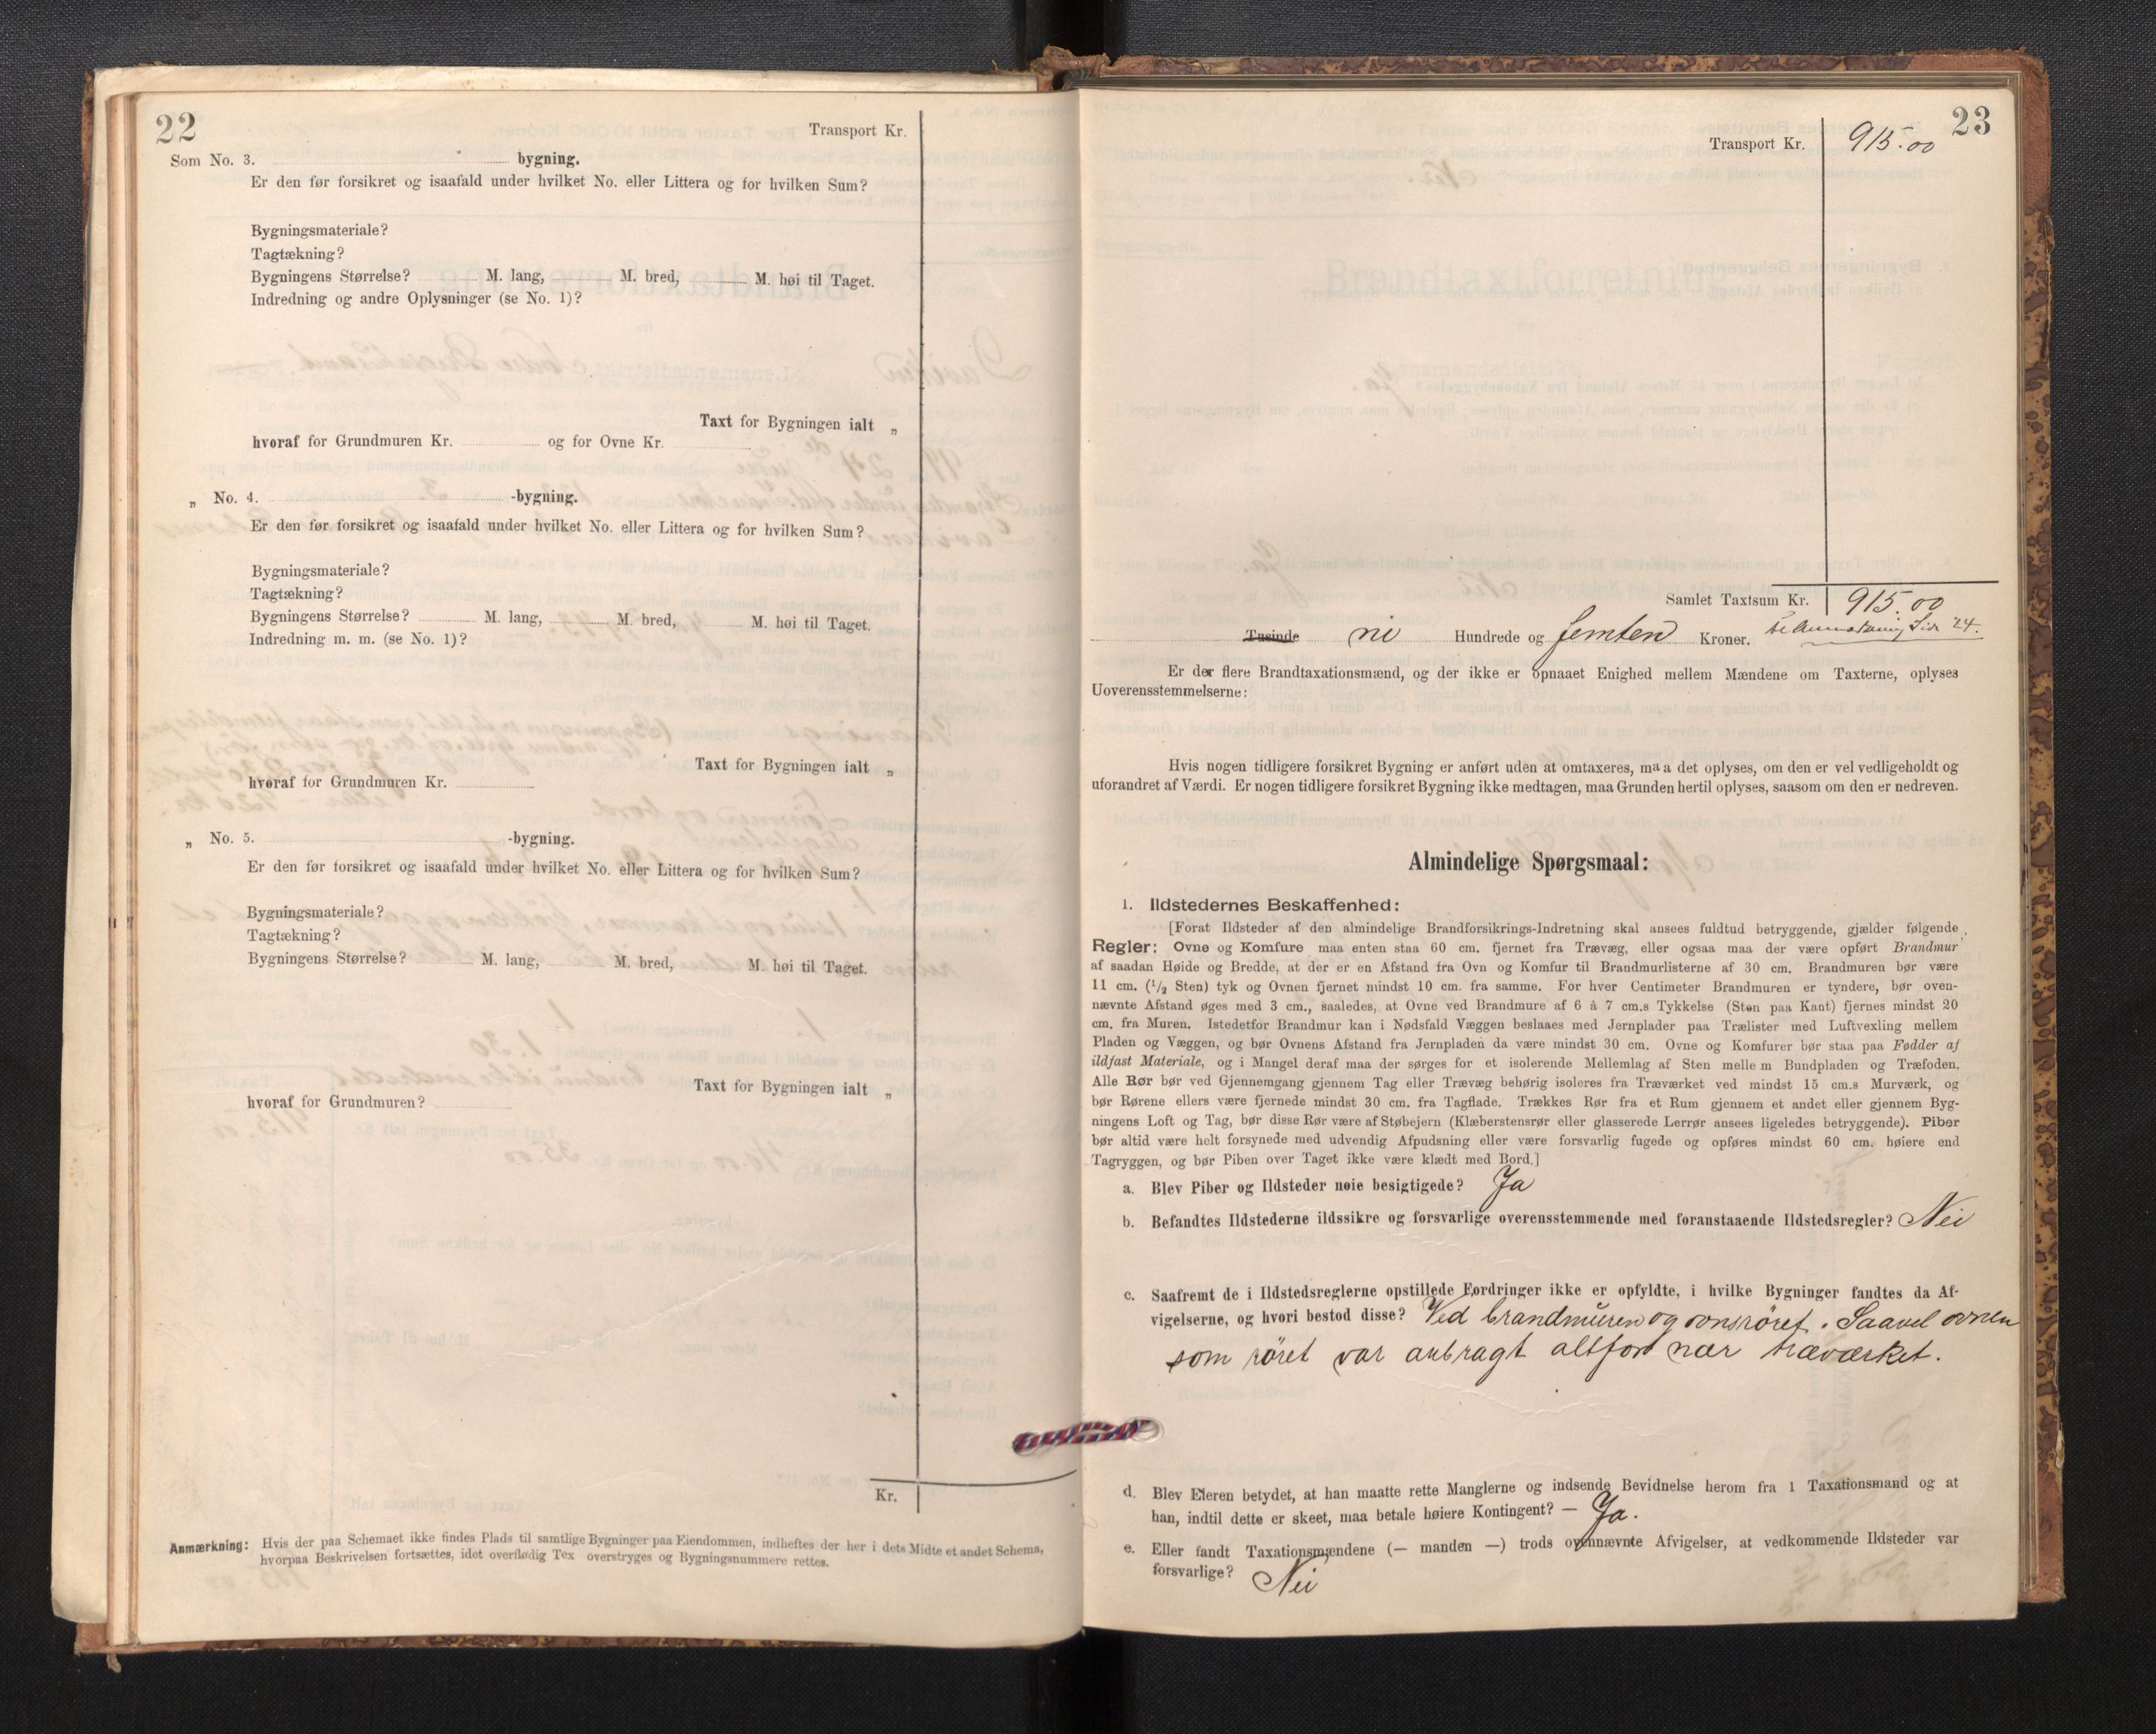 22
Transport Kr.
Som No. 3. bygning.
Er den før forsikret og isaafald under hvilket No. eller Littera og for hvilken Sum?
Bygningsmateriale?
Tagtækning?
Bygningens Størrelse? M. lang, M. bred, M. høi til Taget.
Indredning og andre Oplysninger (se No. 1)?
Taxt for Bygningen ialt „
hvoraf for Grundmuren Kr. og for Ovne Kr.
„ No. 4. -bygning.
Er den før forsikret og isaafald under hvilket No. eller Littera og for hvilken Sum?
Bygningsmateriale?
Tagtækning?
Bygningens Størrelse? M. lang, M. bred, M. høi til Taget.
Indredning m. m. (se No. 1)?
Taxt for Bygningen ialt „
hvoraf for Grundmuren Kr.
„ No. 5. -bygning.
Er den før forsikret og isaafald under hvilket No. eller Littera og for hvilken Sum?
Bygningsmateriale?
Tagtækning?
Bygningens Størrelse? M. lang, M. bred, M. høi til Taget.
Taxt for Bygningen ialt „
hvoraf for Grundmuren?
Kr.
Anmærkning: Hvis der paa Schemaet ikke findes Plads til samtlige Bygninger paa Eiendommen, indheftes der her i dets Midte et andet Schema,
hvorpaa Beskrivelsen fortsættes, idet overflødig Tex overstryges og Bygningsnummere rettes.
23
Transport Kr. 915.00
Samlet Taxtsum Kr. 915.00
Tusinde ni Hundrede og femten Kroner. Se Anmærkning Side 24.
Er der flere Brandtaxationsmænd, og der ikke er opnaaet Enighed mellem Mændene om Taxterne, oplyses
Uoverensstemmelserne:
Hvis nogen tidligere forsikret Bygning er anført uden at omtaxeres, maa det oplyses, om den er vel vedligeholdt og
uforandret af Værdi. Er nogen tidligere forsikret Bygning ikke medtagen, maa Grunden hertil oplyses, saasom om den er nedreven.
Almindelige Spørgsmaal:
1. Ildstedernes Beskaffenhed:
[Forat Ildsteder af den almindelige Brandforsikrings-Indretning skal ansees fuldtud betryggende, gjælder følgende
Regler: Ovne og Komfure maa enten staa 60 cm. fjernet fra Trævæg, eller ogsaa maa der være opført Brandmur
af saadan Høide og Bredde, at der er en Afstand fra Ovn og Komfur til Brandmurlisterne af 30 cm. Brandmuren bør være
11 cm. (1/2 Sten) tyk og Ovnen fjernet mindst 10 cm. fra samme. For hver Centimeter Brandmuren er tyndere, bør oven-
nævnte Afstand øges med 3 cm., saaledes, at Ovne ved Brandmure af 6 à 7 cm.s Tykkelse (Sten paa Kant) fjernes mindst 20
cm. fra Muren. Istedetfor Brandmur kan i Nødsfald Væggen beslaaes med Jernplader paa Trælister med Luftvexling mellem
Pladen og Væggen, og bør Ovnens Afstand fra Jernpladen da være mindst 30 cm. Ovne og Komfurer bør staa paa Fødder af
ildfast Materiale, og i Mangel deraf maa der sørges for et isolerende Mellemlag af Sten mellem Bundpladen og Træfoden.
Alle Rør bør ved Gjennemgang gjennem Tag eller Trævæg behørig isoleres fra Træværket ved mindst 15 cm.s Murværk, og
bør Rørene ellers være fjernede mindst 30 cm. fra Tagflade. Trækkes Rør fra et Rum gjennem et andet eller gjennem Byg-
ningens Loft og Tag, bør disse Rør være af Støbejern (Klæberstensrør eller glasserede Lerrør ansees ligeledes betryggende). Piber
bør altid være helt forsynede med udvendig Afpudsning eller være forsvarlig fugede og opføres mindst 60 cm. høiere end
Tagryggen, og bør Piben over Taget ikke være klædt med Bord.]
a. Blev Piber og Ildsteder nøie besigtigede? Ja
b. Befandtes Ildstederne ildssikre og forsvarlige overensstemmende med foranstaaende Ildstedsregler? Nei
c. Saafremt de i Ildstedsreglerne opstillede Fordringer ikke er opfyldte, i hvilke Bygninger fandtes da Af-
vigelserne, og hvori bestod disse? Ved brandmuren og ovnsröret. Saavel ovnen
som röret var anbragt altfor nær træværket.
d. Blev Eieren betydet, at han maatte rette Manglerne og indsende Bevidnelse herom fra 1 Taxationsmand og at
han, indtil dette er skeet, maa betale høiere Kontingent? — Ja.
e. Eller fandt Taxationsmændene (— manden —) trods ovennævnte Afvigelser, at vedkommende Ildsteder var
forsvarlige? Nei